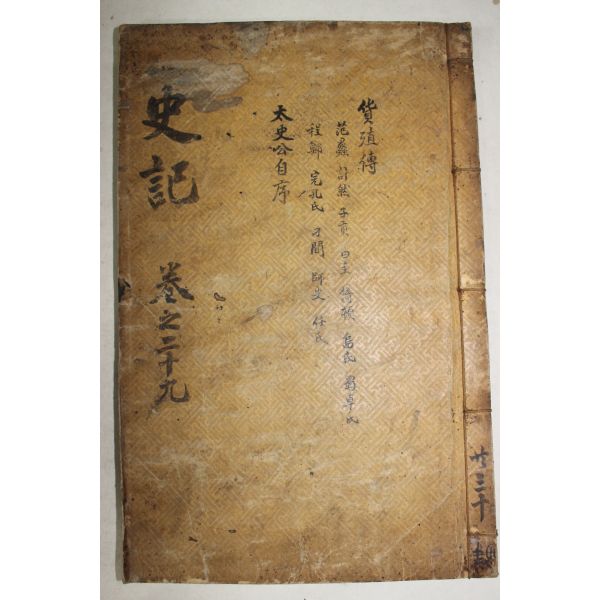 貨殖傳
范蠡 計然 子貢 白圭 猗頓 烏氏 蜀卓氏
程鄭 宛孔氏 刁閒 師史 任氏
太史公自序
史記 卷之二十九
共三十